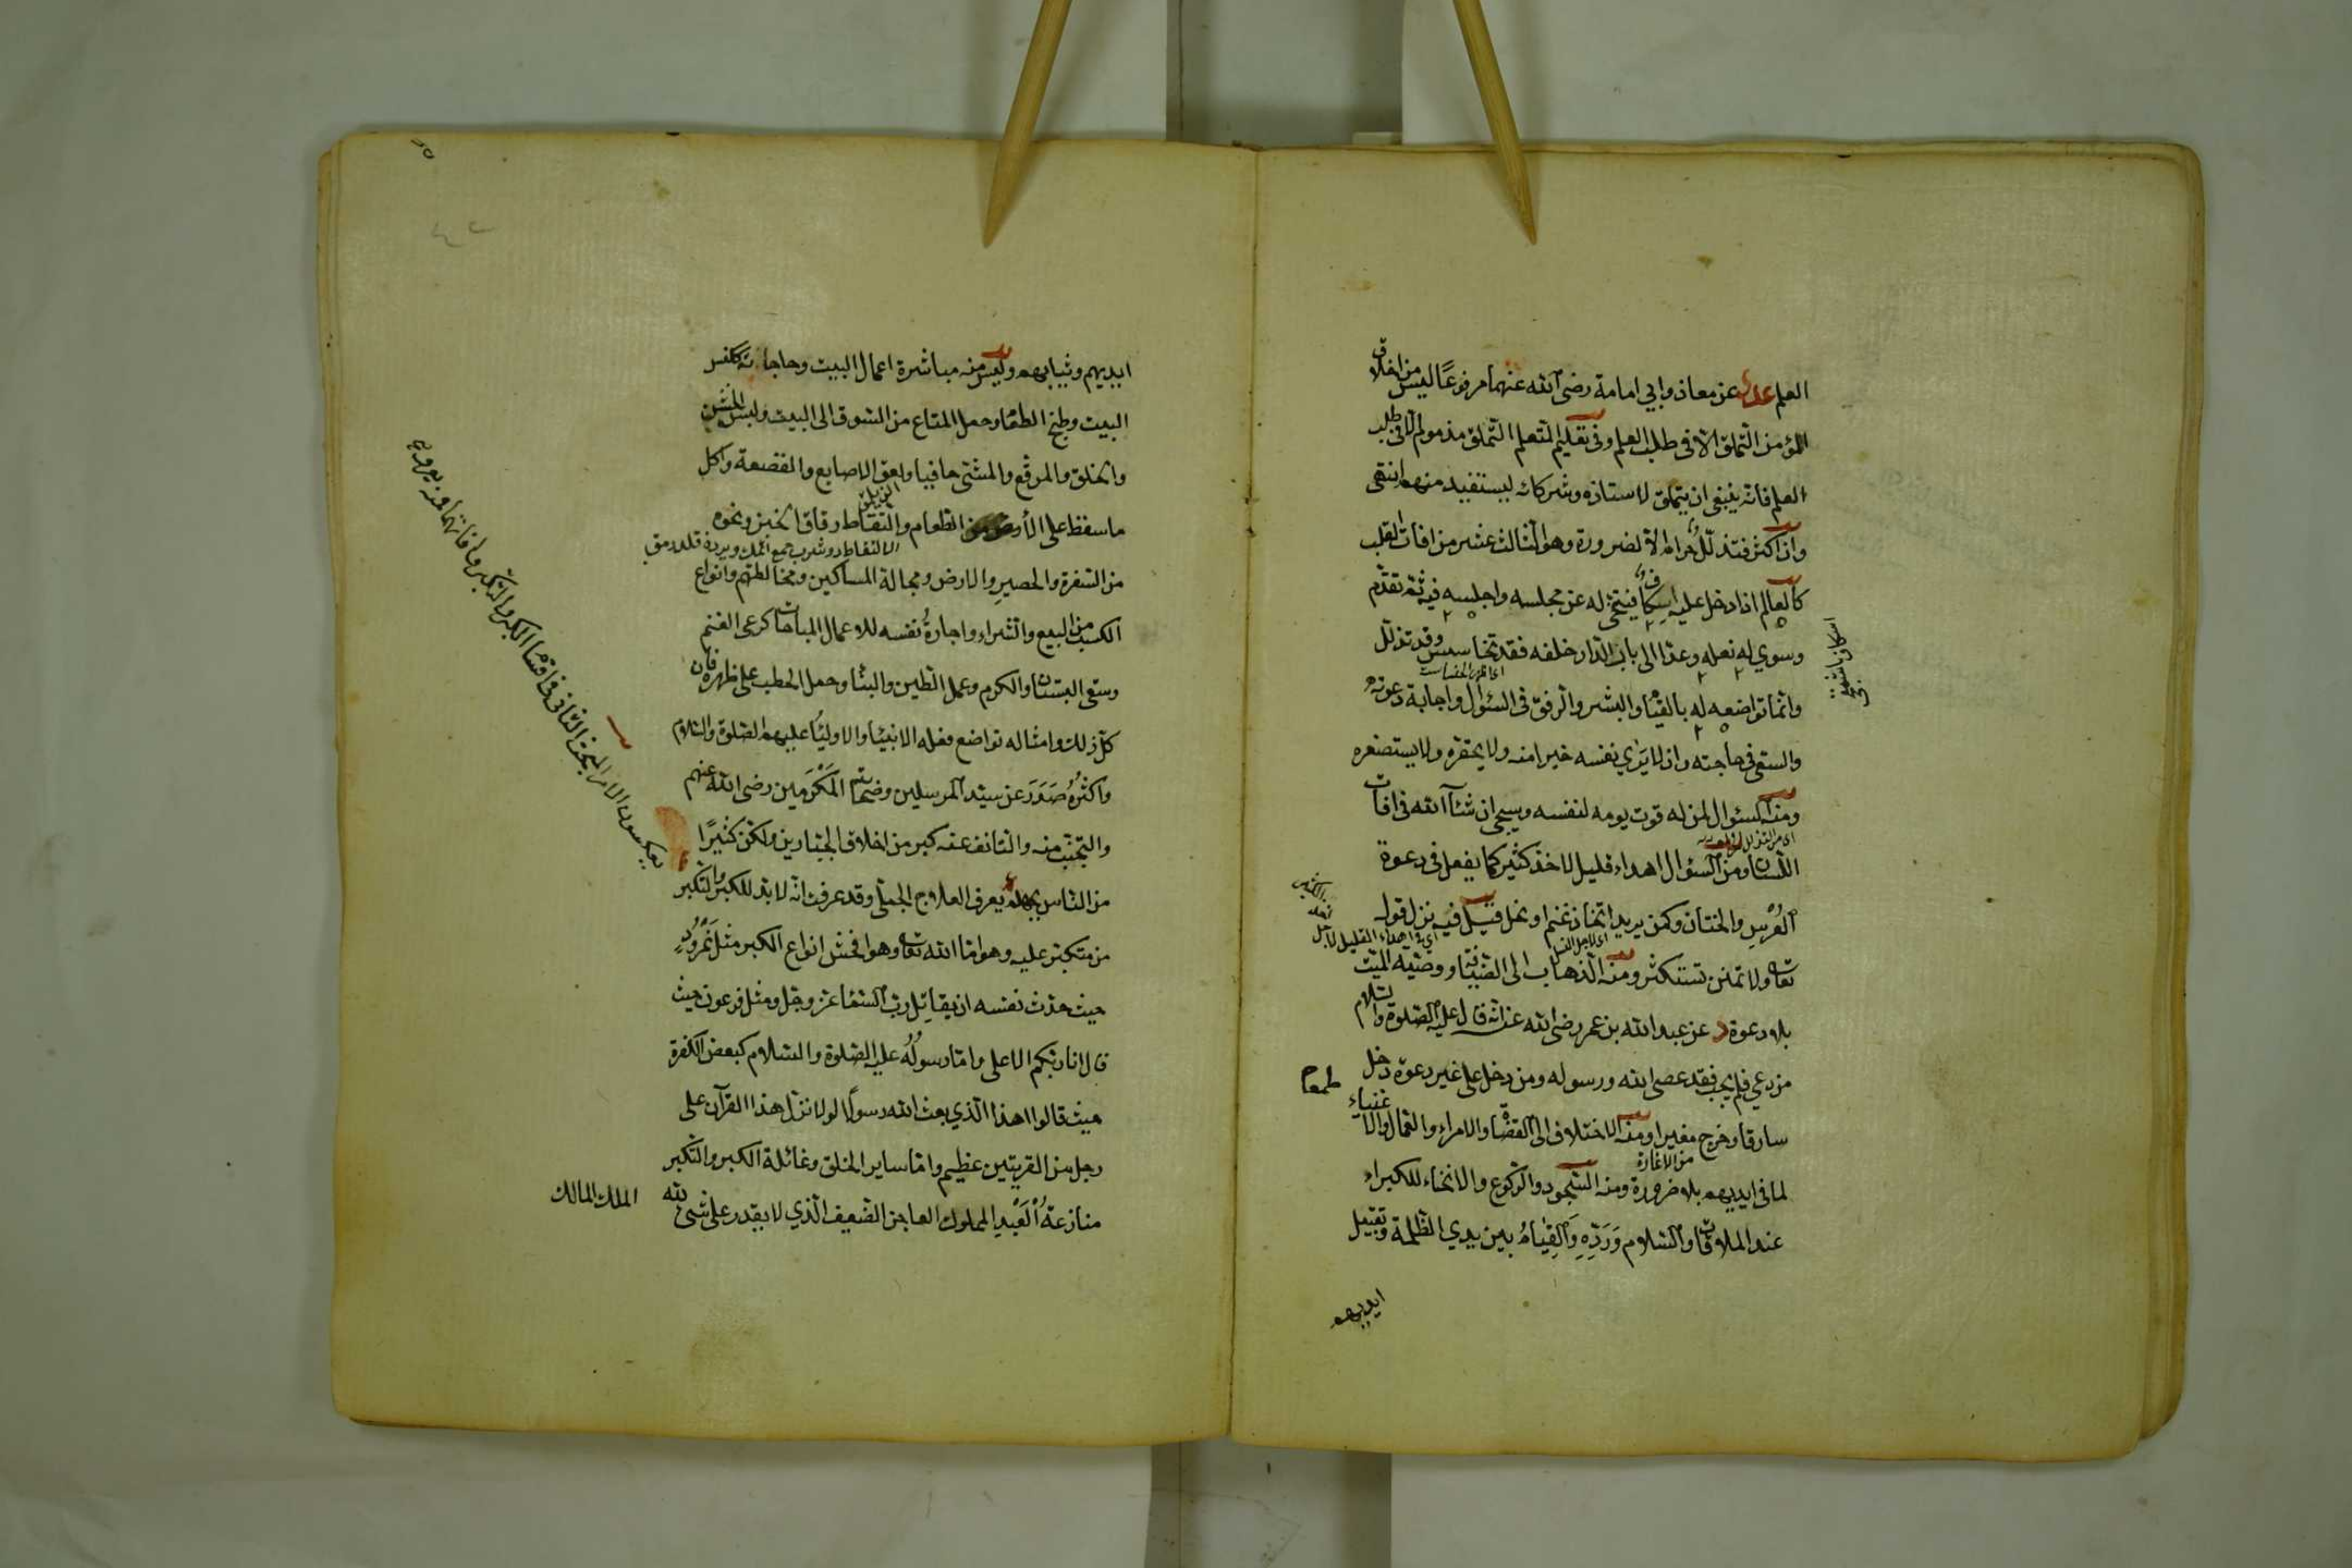 العلم عد عن معاذ وابي امامة رضى الله عنهما مرفوعًا ليس من اخلاق
المؤمن التملق الا فى طلب العلم وفى تعليم المتعلم التملق مذموم الا فى طلب
العلم فانه ينبغى ان يتملق لاستاذه وشركائه ليستفيد منهم انتهى
وان اكثر فتذلّل حرام الا لضرورة وهو الثالث عشر من افات القلب
كالعالم اذا دخل عليه اسكاف فيتنحى له عن مجلسه واجلسه فيه ثم تقدّم
وسوي له نعله وعدا الى باب الدار خلفه فقد تخاسس وقد تذلّل
اى اظهر الخساست
وانما تواضعه له بالقيام والبشر والرفق فى السئوال واجابة دعوته
والسعى فى حاجته وان لا يرى نفسه خيرا منه ولا يحقره ولا يستصغره
ومنه السئوال لمن له قوت يومه لنفسه وسيجى ان شاء الله فى افات
اى من التذلل
اللسان ومن السئوال اهداء قليل لاخذ كثير كما يفعل فى دعوة
العُرسِ والختان وكمن يريد اتخاذ غنم او نحل قيل فيه نزل قوله
اى فى اهداء القليل لاجل
تعالى ولا تمنن تستكثر ومنه الذهاب الى الضيافة او وصيّة الميّت
بلا دعوة د عن عبد الله بن عمر رضى الله عنه انه قال عليه الصلوة والسلام
من دعي فلم يجب فقد عصى الله ورسوله ومن دخل على غير دعوة دخل
طعام
سارقا وخرج مغيرا ومنه الاختلاف الى القضاة والامراء والعمال والاغنياء
من الاغارة
لما فى ايديهم بلا ضرورة ومنه السجود والركوع والانحناء للكبراء
عند الملاقات والسلام وَرَدِّهِ وَالقِيَامُ بين يدي الظلمة وتقبيل
ايديهم
ايديهم وثيابهم وليس منه مباشرة اعمال البيت وحاجاته ككنس
البيت وطبخ الطعام وحمل المتاع من السوق الى البيت ولبس الخشن
والخلق والمرقّع والمشى حافيا ولعق الاصابع والقصعة واكل
ما سقط على الأرض من الطعام والتقاط رقاق الخبز ونحوه
من السفرة والحصيرِ والارض ومجالسة المساكين ومخالطتهم وانواع
الكسب من البيع والشراء واجارةُ نفسه للاعمال المباحات كرعى الغنم
وسقى البستان والكرم وعمل الطين والبناء وحمل الحطب على ظهره فان
كل ذلك وامثاله تواضع فعله الانبياء والاولياء عليهم الصلوة والسلام
واكثرُهُ صَدَرَ عن سيّد المرسلين وصحابته المكرمين رضى الله عنهم
والتجنّب منه والتانف عنه كبر من اخلاق الجبّارين ولكن كثيرًا
من الناس يعرف العلاج الجملى وقد عرفت انه لا بد للكبر والتكبر
من متكبّر عليه وهو اما الله تعالى وهو افحش انواع الكبر مثل نَمْرُودِ
حيث حدّث نفسه ان يقاتِل ربّ السماء عز وجل ومثل فرعون حيث
قال انا ربّكم الاعلى واما رسولُهُ عليه الصلوة والسلام كبعض الكفرة
حيث قالوا اهذا الذي بعث الله رسولًا لولا نزّل هذا القرآن على
رجل من القريتين عظيم واما ساير الخلق وغائلة الكبر والتكبر
منازعةُ الْعَبْدِ المملوك العاجز الضعيف الذي لا يقدر على شئ لله
الملك المالك
المبحث الثانى فى اقسام الكبر والتكبر